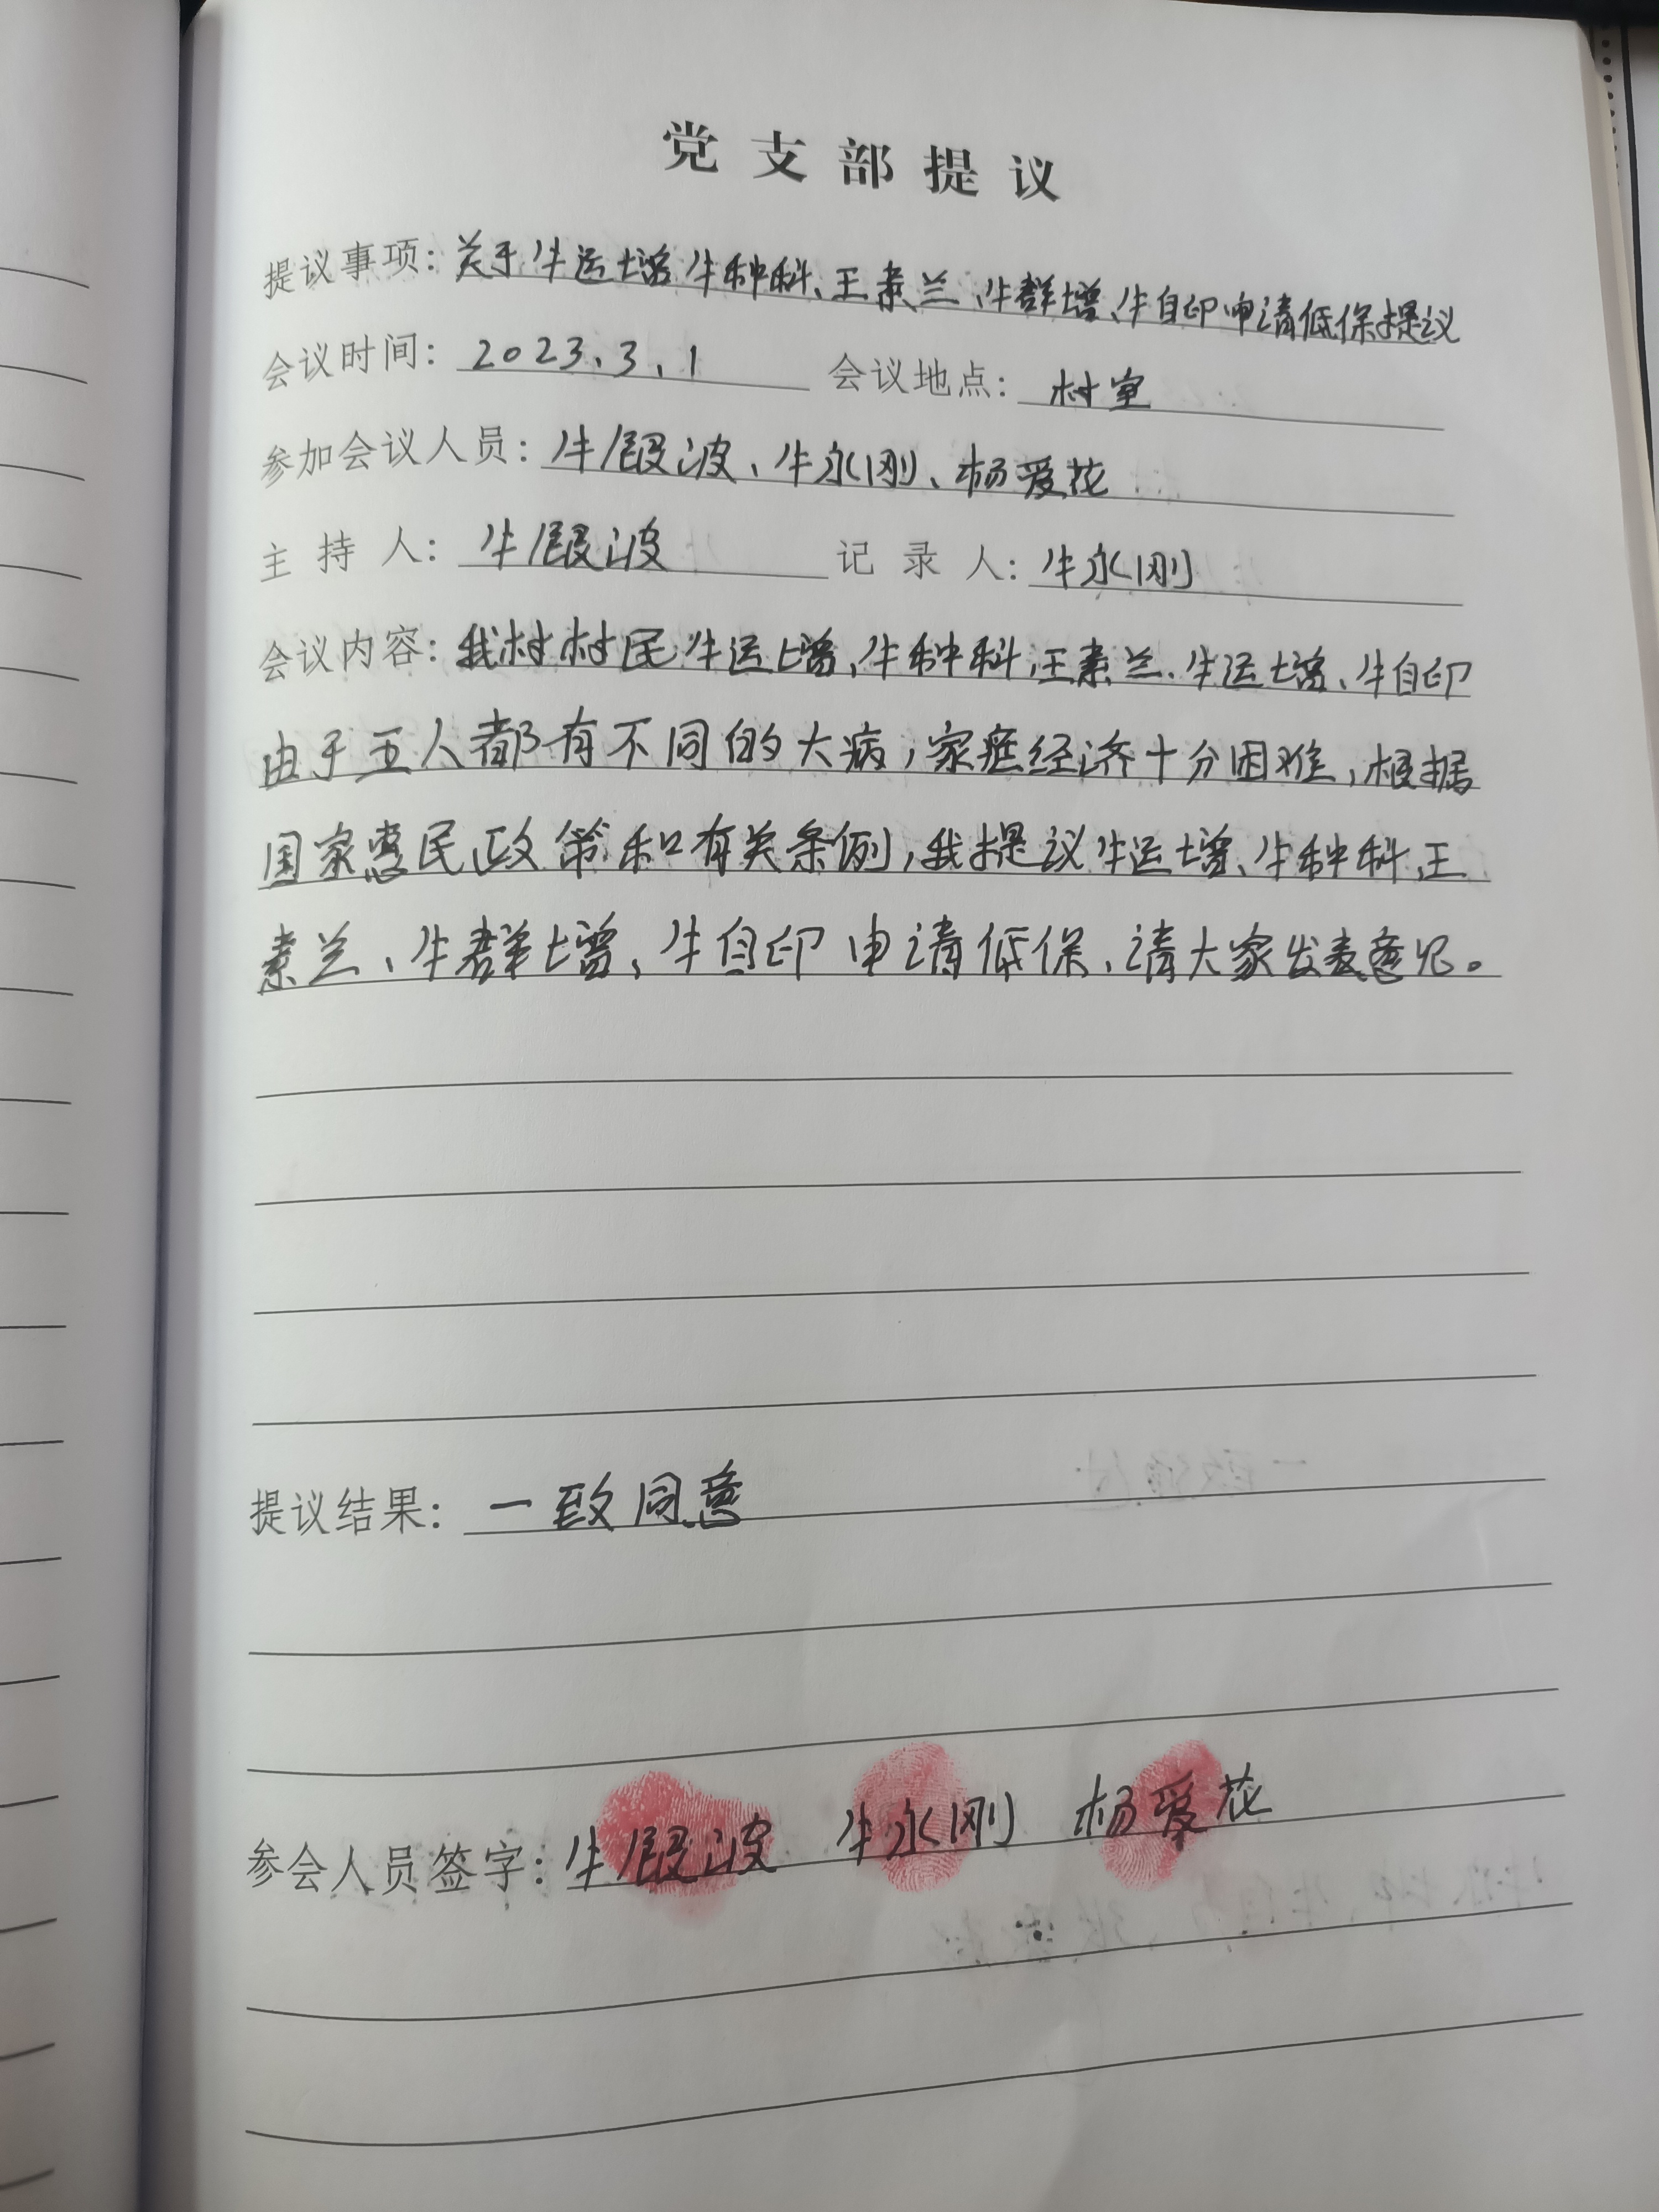 党支部提议
提议事项：关于牛运增牛种科、王素兰、牛群增、牛自印申请低保提议
会议时间：2023.3.1 会议地点：村室
参加会议人员：牛殿波、牛永刚、杨爱花
主持人：牛殿波 记录人：牛永刚
会议内容：我村村民牛运增，牛种科，王素兰、牛运增、牛自印
由于五人都有不同的大病，家庭经济十分困难，根据
国家惠民政策和有关条例，我提议牛运增、牛种科，王
素兰、牛群增、牛自印申请低保，请大家发表意见。
提议结果：一致同意
参会人员签字：牛殿波 牛永刚 杨爱花